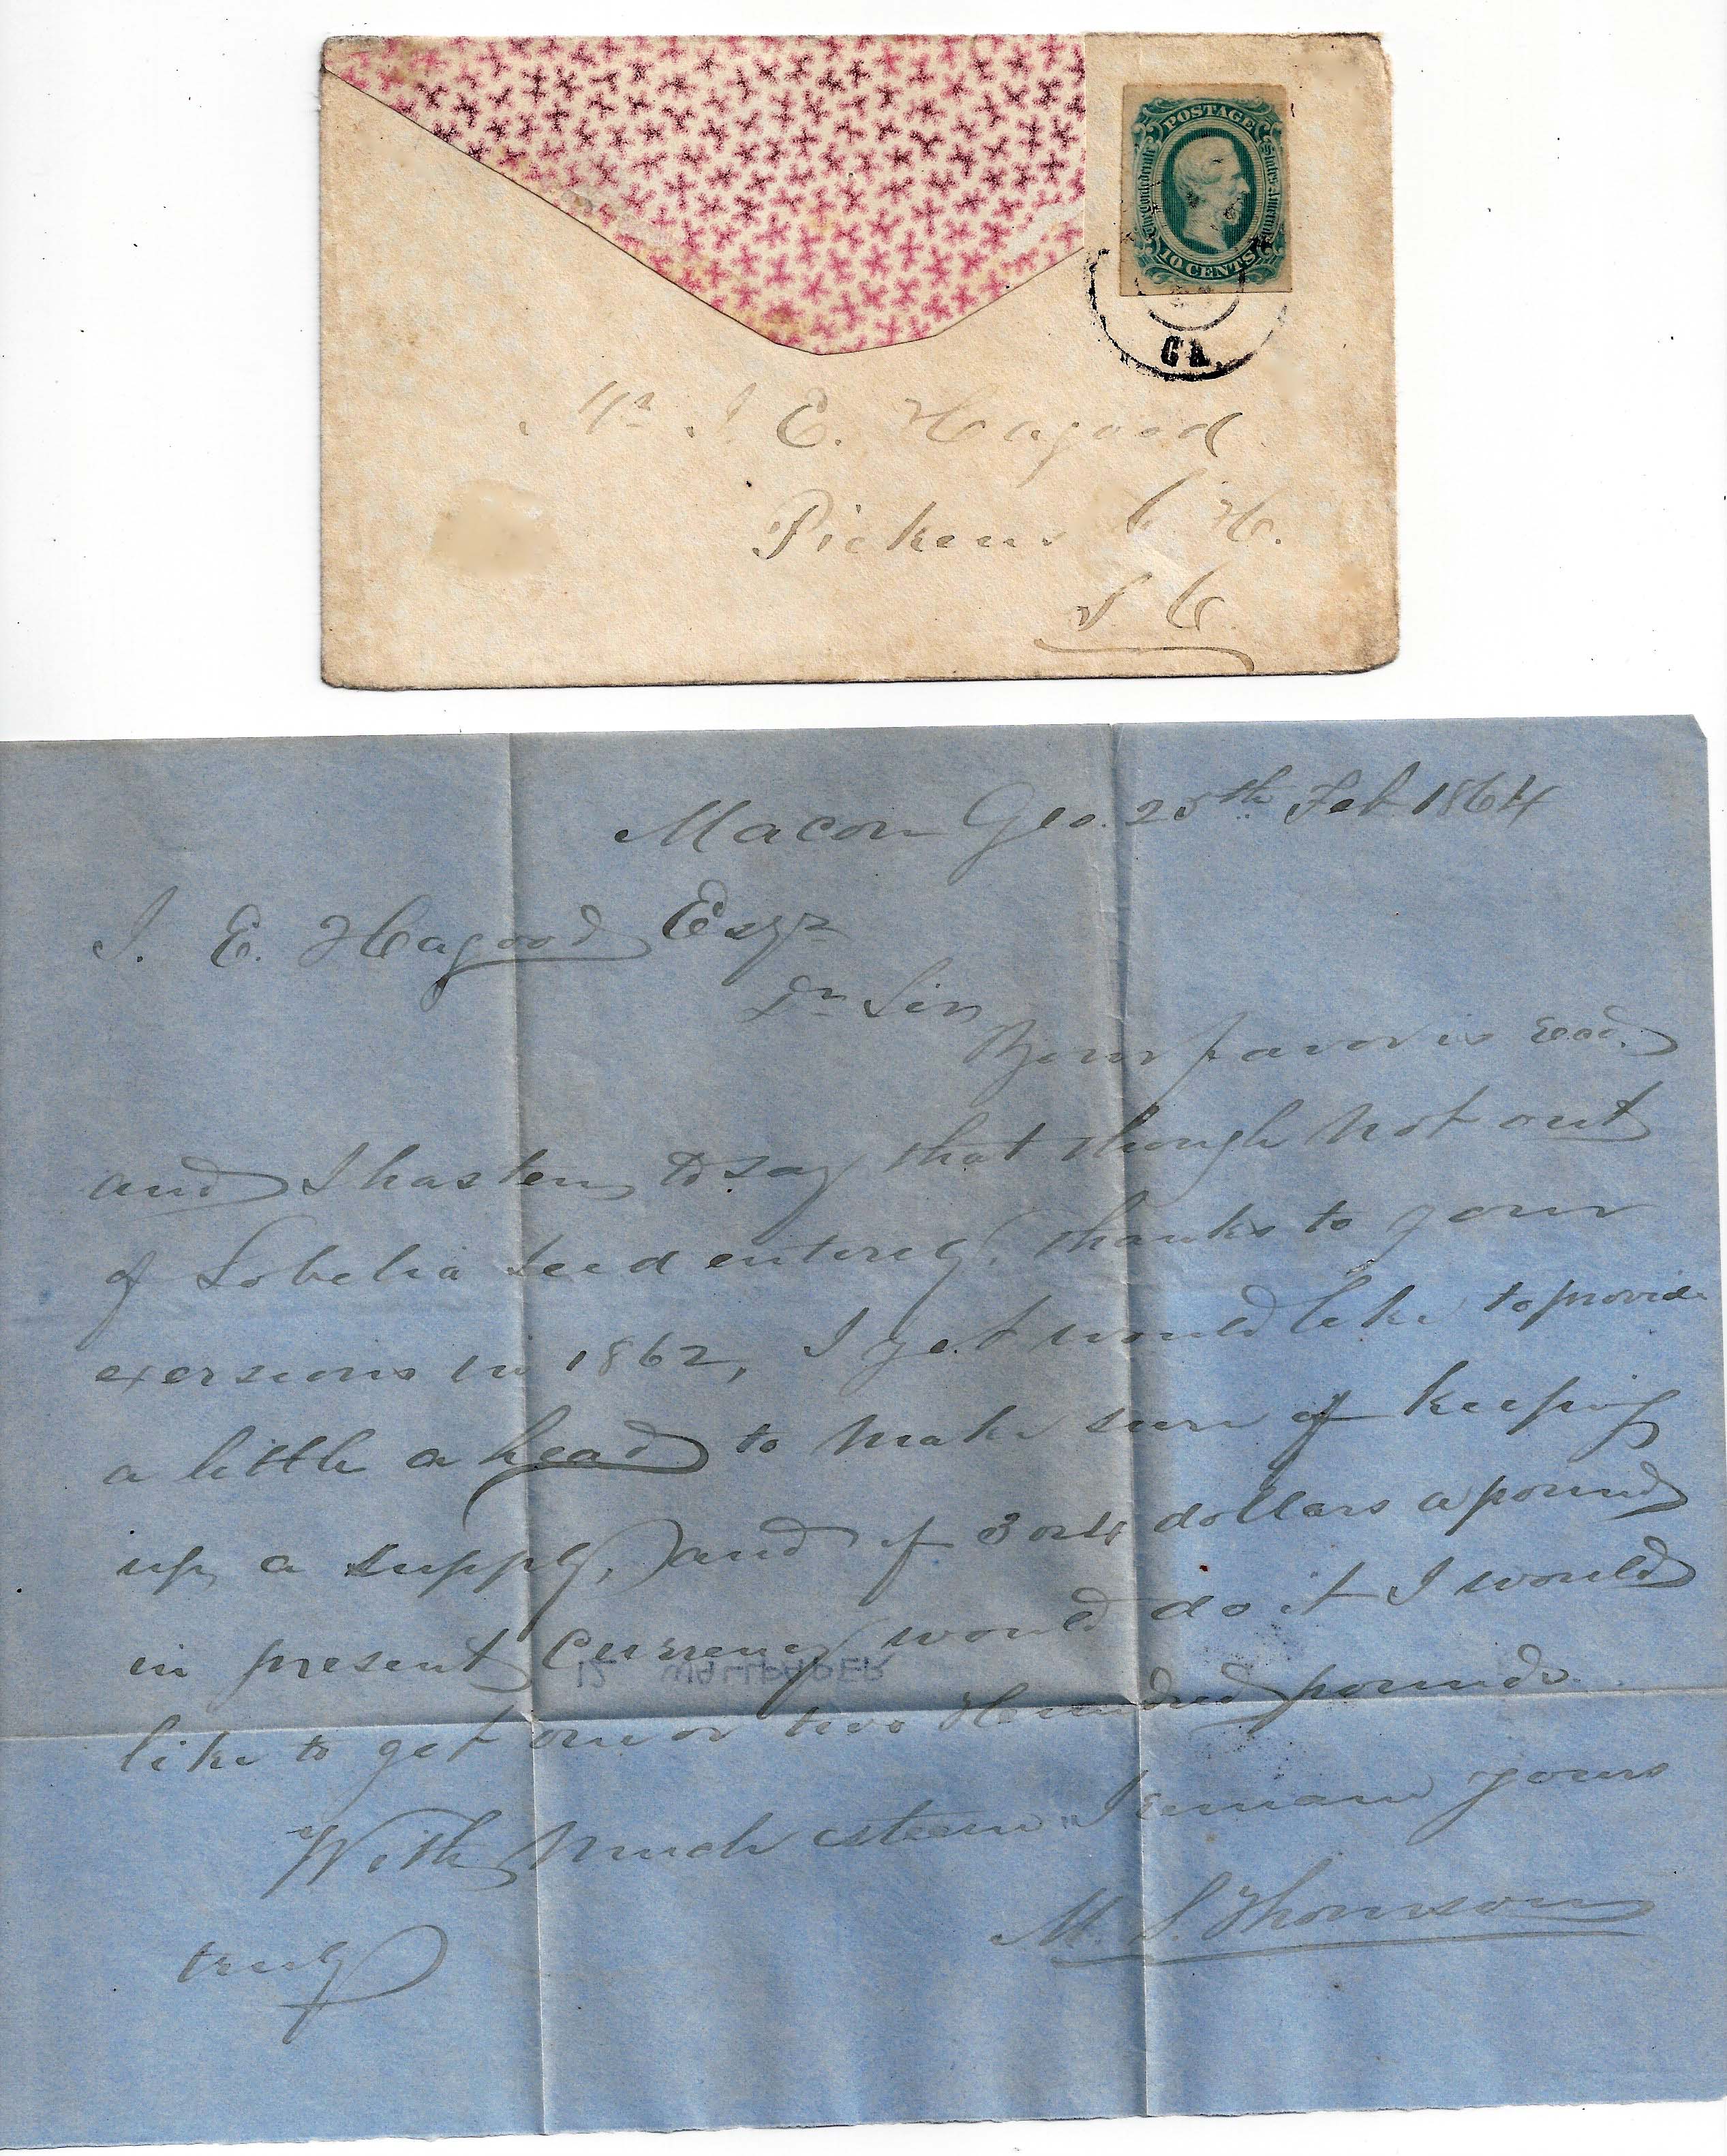 POSTAGE
The Confederate States of America
10 CENTS
GA.
Mr J. E. Hagood
Pickens C. H.
S. C.
Macon Geo. 25th Feb 1864
J. E. Hagood Esqr
Dr Sir
Your favor is recd.
and I hasten to say that though not out
of Lobelia seed entirely, thanks to your
exersions in 1862, I yet would like to provide
a little ahead to make sure of keeping
up a supply, and if 3 or 4 dollars a pound
in present currency would do it I would
12 WALLPAPER
like to get one or two Hundred pounds.
With much esteem I remain yours
truly
M. S. Thomson